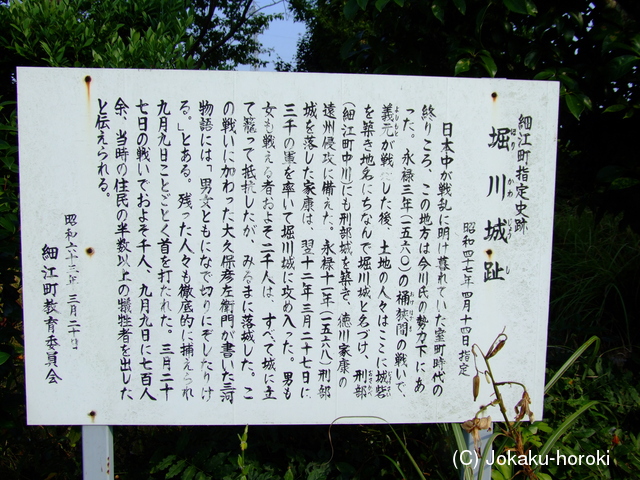 細江町指定史跡
堀川城址
ほりかわじょうし
昭和四十七年四月十四日指定
日本中が戦乱に明け暮れていた室町時代の
終りころ、この地方は今川氏の勢力下にあ
った。永禄三年(一五六〇)の桶狭間の戦いで、
義元が戦死した後、土地の人々はここに城砦
を築き地名にちなんで堀川城と名づけ、刑部
(細江町中川)にも刑部城を築き、徳川家康の
遠州侵攻に備えた。永禄十一年(一五六八)刑部
城を落した家康は、翌十二年三月二十七日に
三千の軍を率いて堀川城に攻め入った。男も
女も戦える者およそ二千人は、すべて城に立
て籠って抵抗したが、みるまに落城した。こ
の戦いに加わった大久保彦左衛門が書いた三河
物語には、「男女ともになで切りにぞしたりけ
る。」とある。残った人々も徹底的に捕えられ
九月九日ことごとく首を打たれた。三月二十
七日の戦いでおよそ千人、九月九日に七百人
余、当時の住民の半数以上の犠牲者を出した
と伝えられる。
昭和六十三年三月二十日
細江町教育委員会
(C) Jokaku-horoki